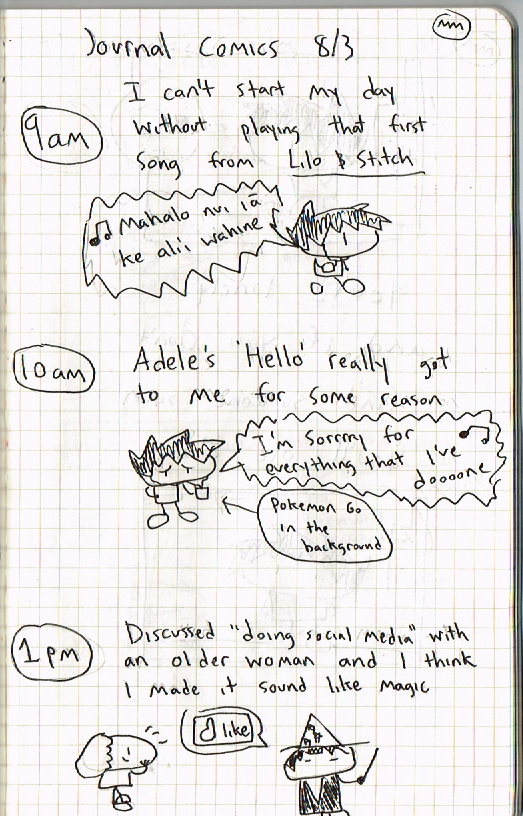 mm
Journal Comics 8/3
9am
I can't start my day
without playing that first
song from Lilo & Stitch
Mahalo nui iā
ke ali'i wahine
10am
Adele's 'Hello' really got
to me for some reason
I'm Sorrrry for
everything that I've
doooone
Pokemon Go
in the
background
1pm
Discussed "doing social media" with
an older woman and I think
I made it sound like magic
like